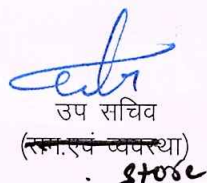 उप सचिव
(साम.एवं व्यवस्था)
store